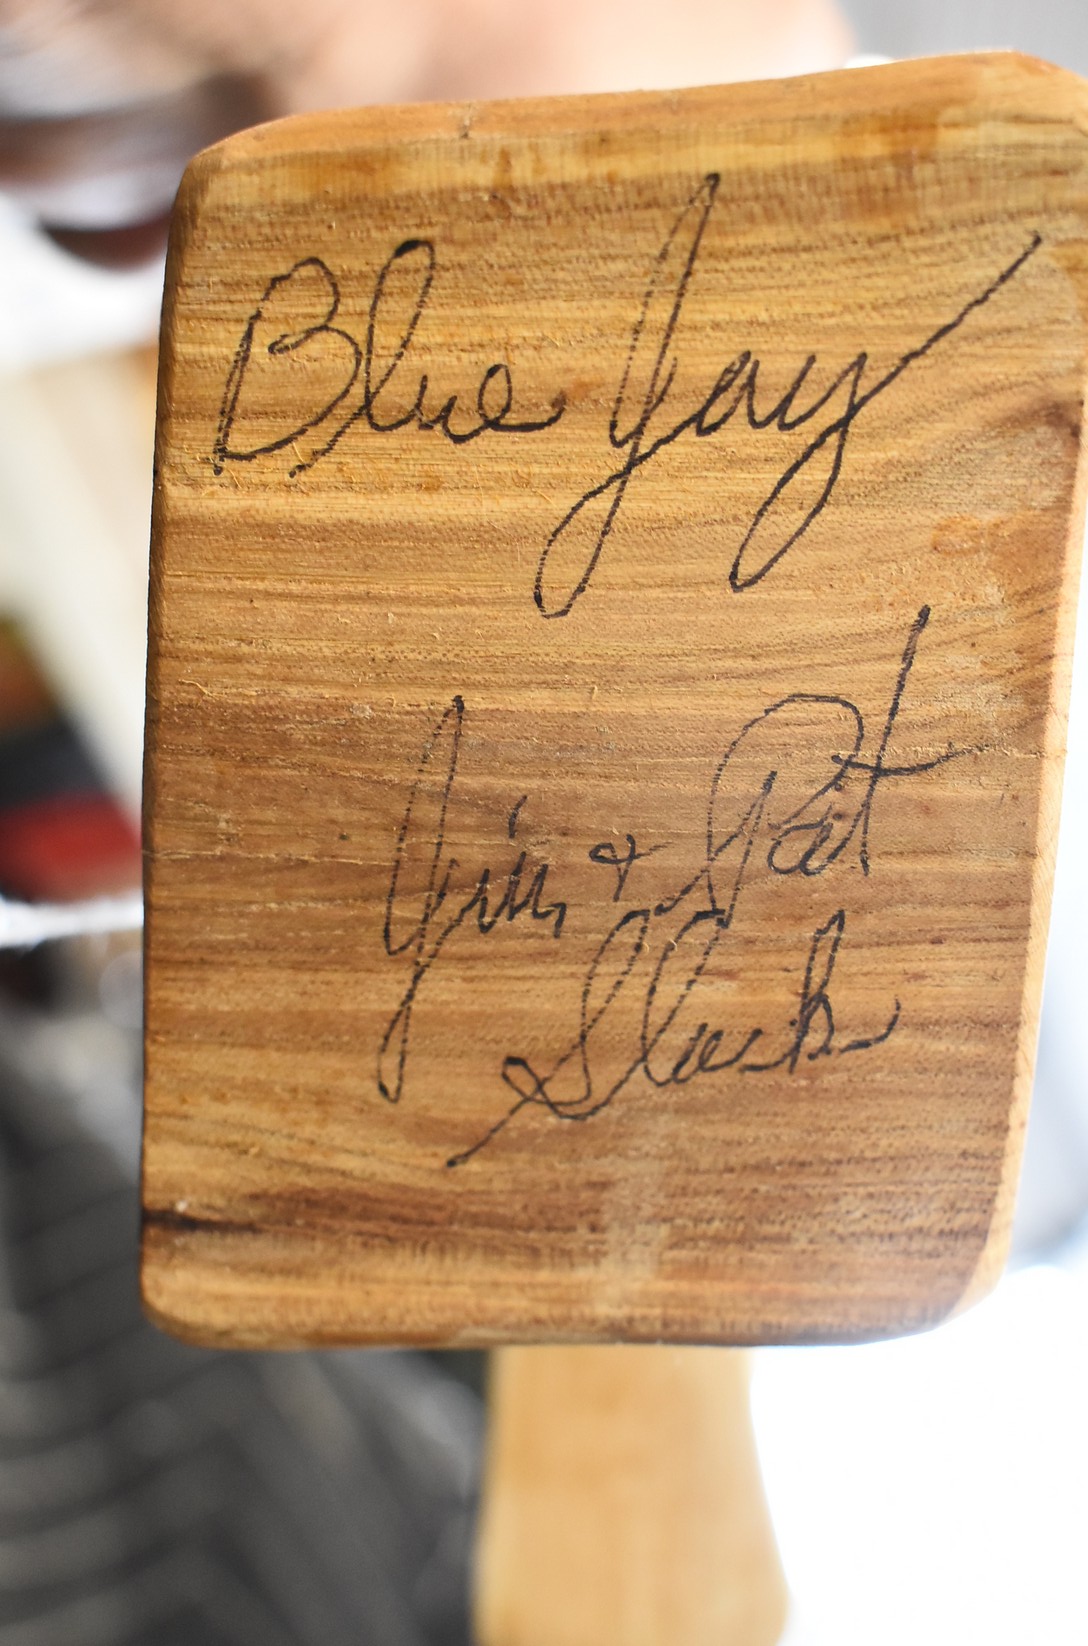 Blue Jay
Jim + Pat
Slack